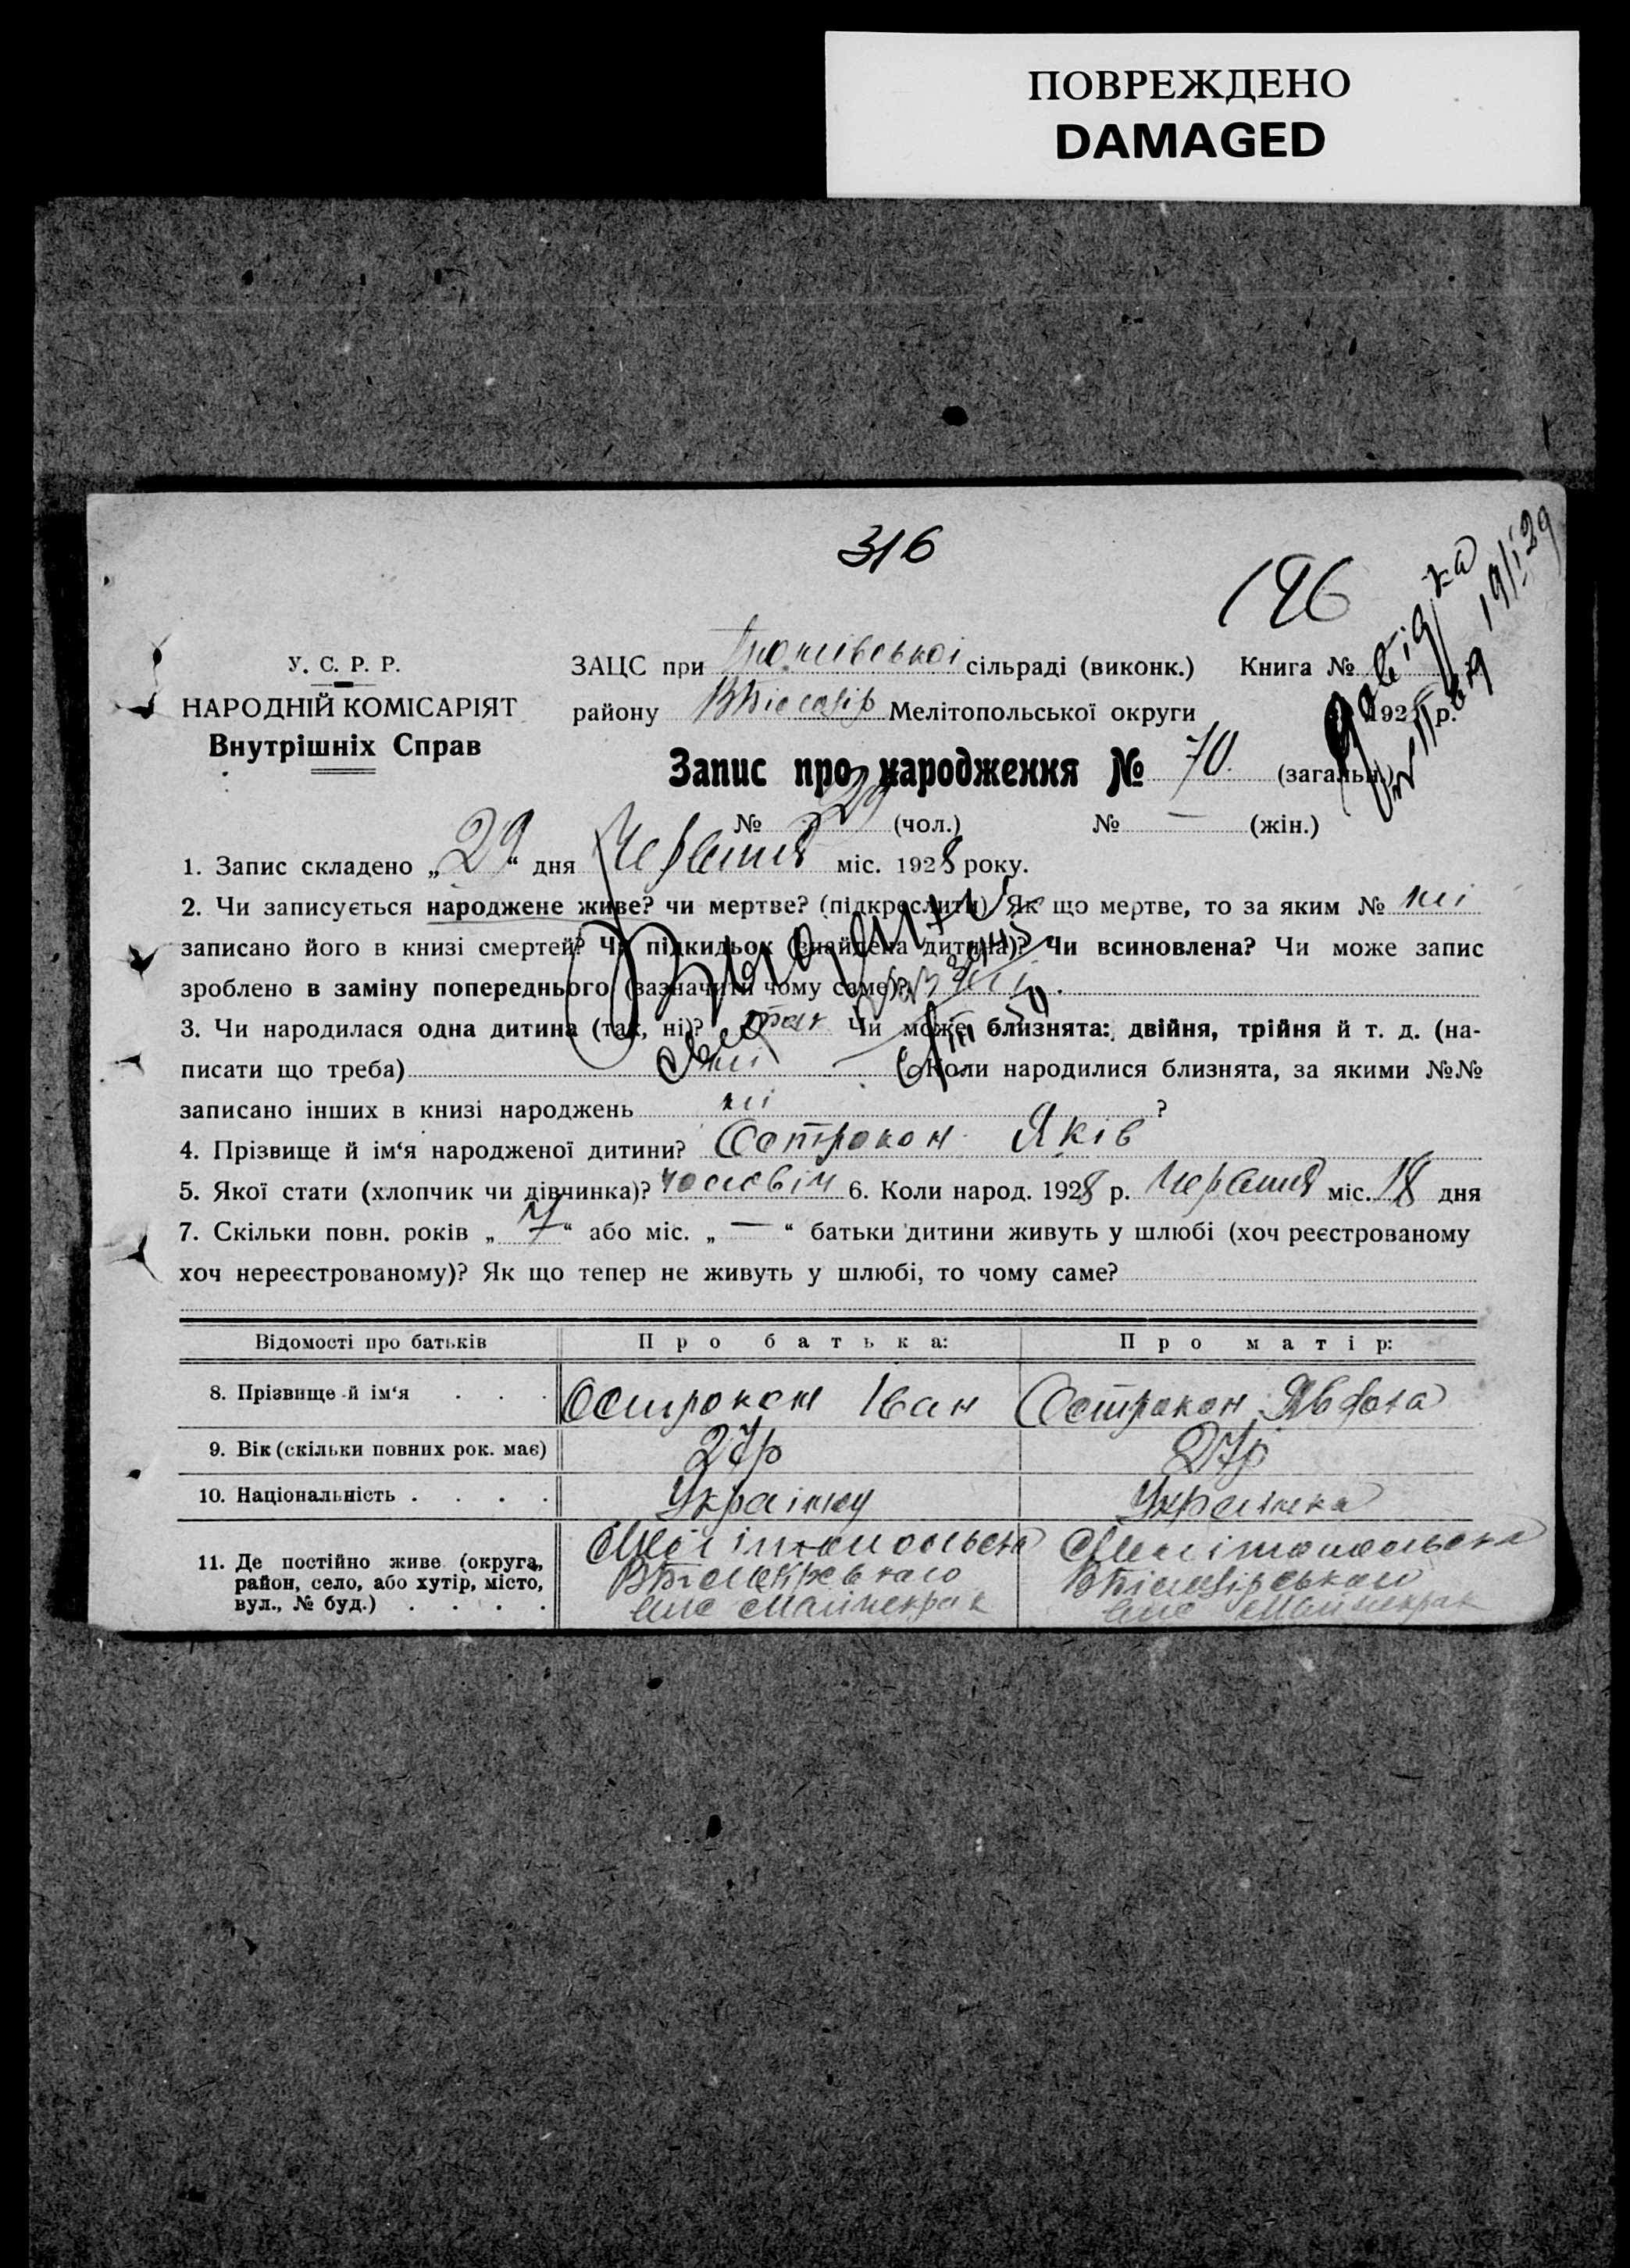 ПОВРЕЖДЕНО
DAMAGED
316
196
У. С. Р. Р.
НАРОДНІЙ КОМІСАРІЯТ
Внутрішніх Справ
ЗАЦС при сільраді (виконк.) Книга №
району Мелітопольської округи 1928 р.
довідка
19/I 29
Запис про народження № 70 (загальн.)
№ 29 (чол.) № — (жін.)
1. Запис складено „29“ дня Червня міс. 1928 року.
2. Чи записується народжене живе? чи мертве? (підкреслити) Як що мертве, то за яким № ні
записано його в книзі смертей? Чи підкидьок (знайдена дитина)? Чи всиновлена? Чи може запис
зроблено в заміну попереднього (зазначити чому саме)? ні.
3. Чи народилася одна дитина (так, ні)? так Чи може близнята: двійня, трійня й т. д. (на-
писати що треба) ні (Коли народилися близнята, за якими №№
записано інших в книзі народжень ні ?
4. Прізвище й ім‘я народженої дитини? Остропон Яків
5. Якої стати (хлопчик чи дівчинка)? чоловіч 6. Коли народ. 1928 р. Червня міс. 18 дня
7. Скільки повн. років „7“ або міс. „—“ батьки дитини живуть у шлюбі (хоч реєстрованому
хоч нереєстрованому)? Як що тепер не живуть у шлюбі, то чому саме?
Відомості про батьків Про батька: Про матір:
8. Прізвище й ім‘я . . . Остропон Іван Остропон
9. Вік (скільки повних рок. має) 27р 27р
10. Національність . . . . Українец Українка
11. Де постійно живе (округа, Мелітопольська Мелітопольська
район, село, або хутір, місто,
вул., № буд.) . . . .